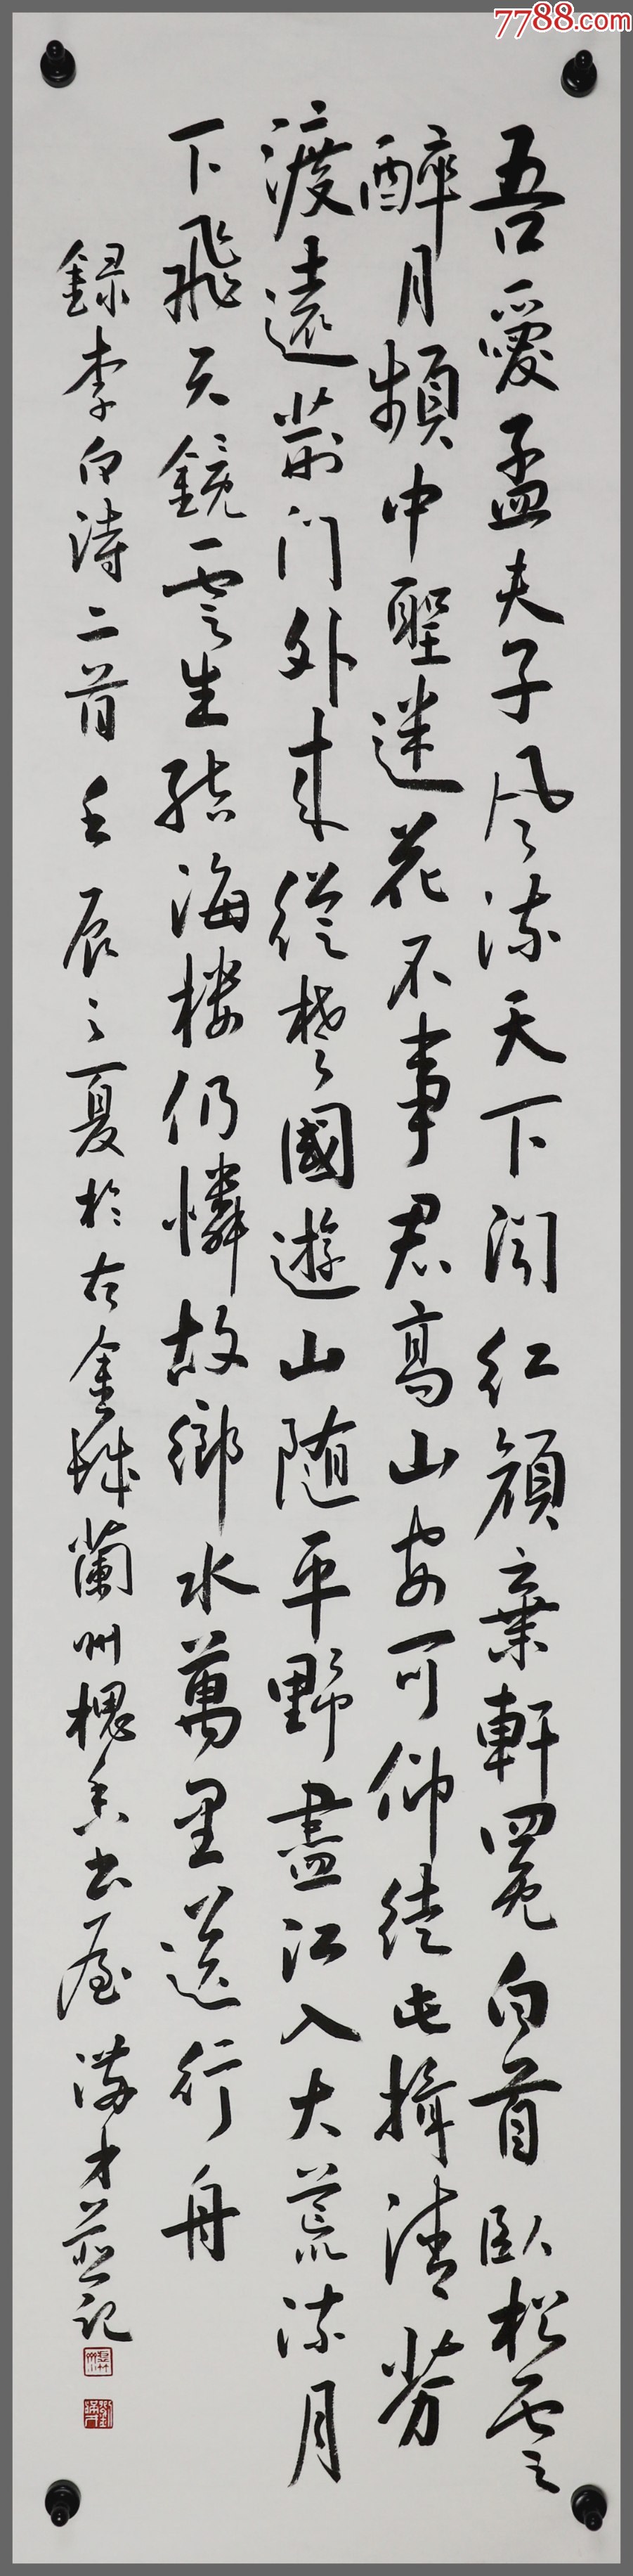 吾愛孟夫子風流天下聞紅顏棄軒冕白首臥松雲
醉月頻中聖迷花不事君高山安可仰徒此揖清芬
渡遠荊门外来從楚國遊山随平野盡江入大荒流月
下飛天鏡雲生结海楼仍憐故鄉水萬里送行舟
録李白詩二首壬辰之夏於古金城蘭州槐香书屋滿才並记
7788.com